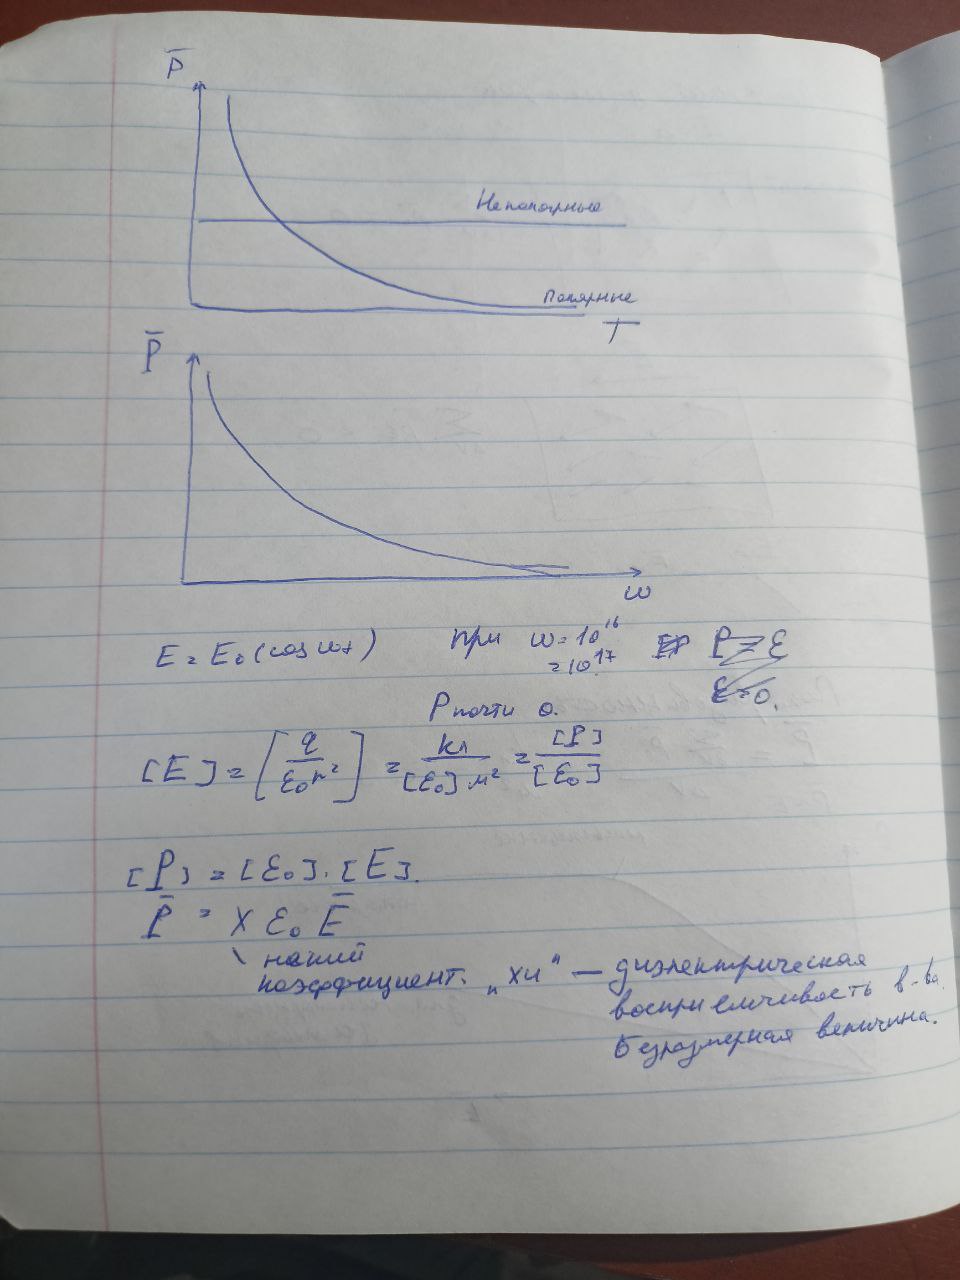 P̄
Неполярные
Полярные
T
P̄
ω
E = E₀ (cos ωt) при ω = 10¹⁶
= 10¹⁷.
P почти 0.
[E] = [q / ε₀r²] = Кл / [ε₀] м² = [P] / [ε₀]
[P] = [ε₀] · [E].
P̄ = χ ε₀ Ē
наший
коэффициент. „хи" — диэлектрическая
восприимчивость в-ва.
Безразмерная величина.